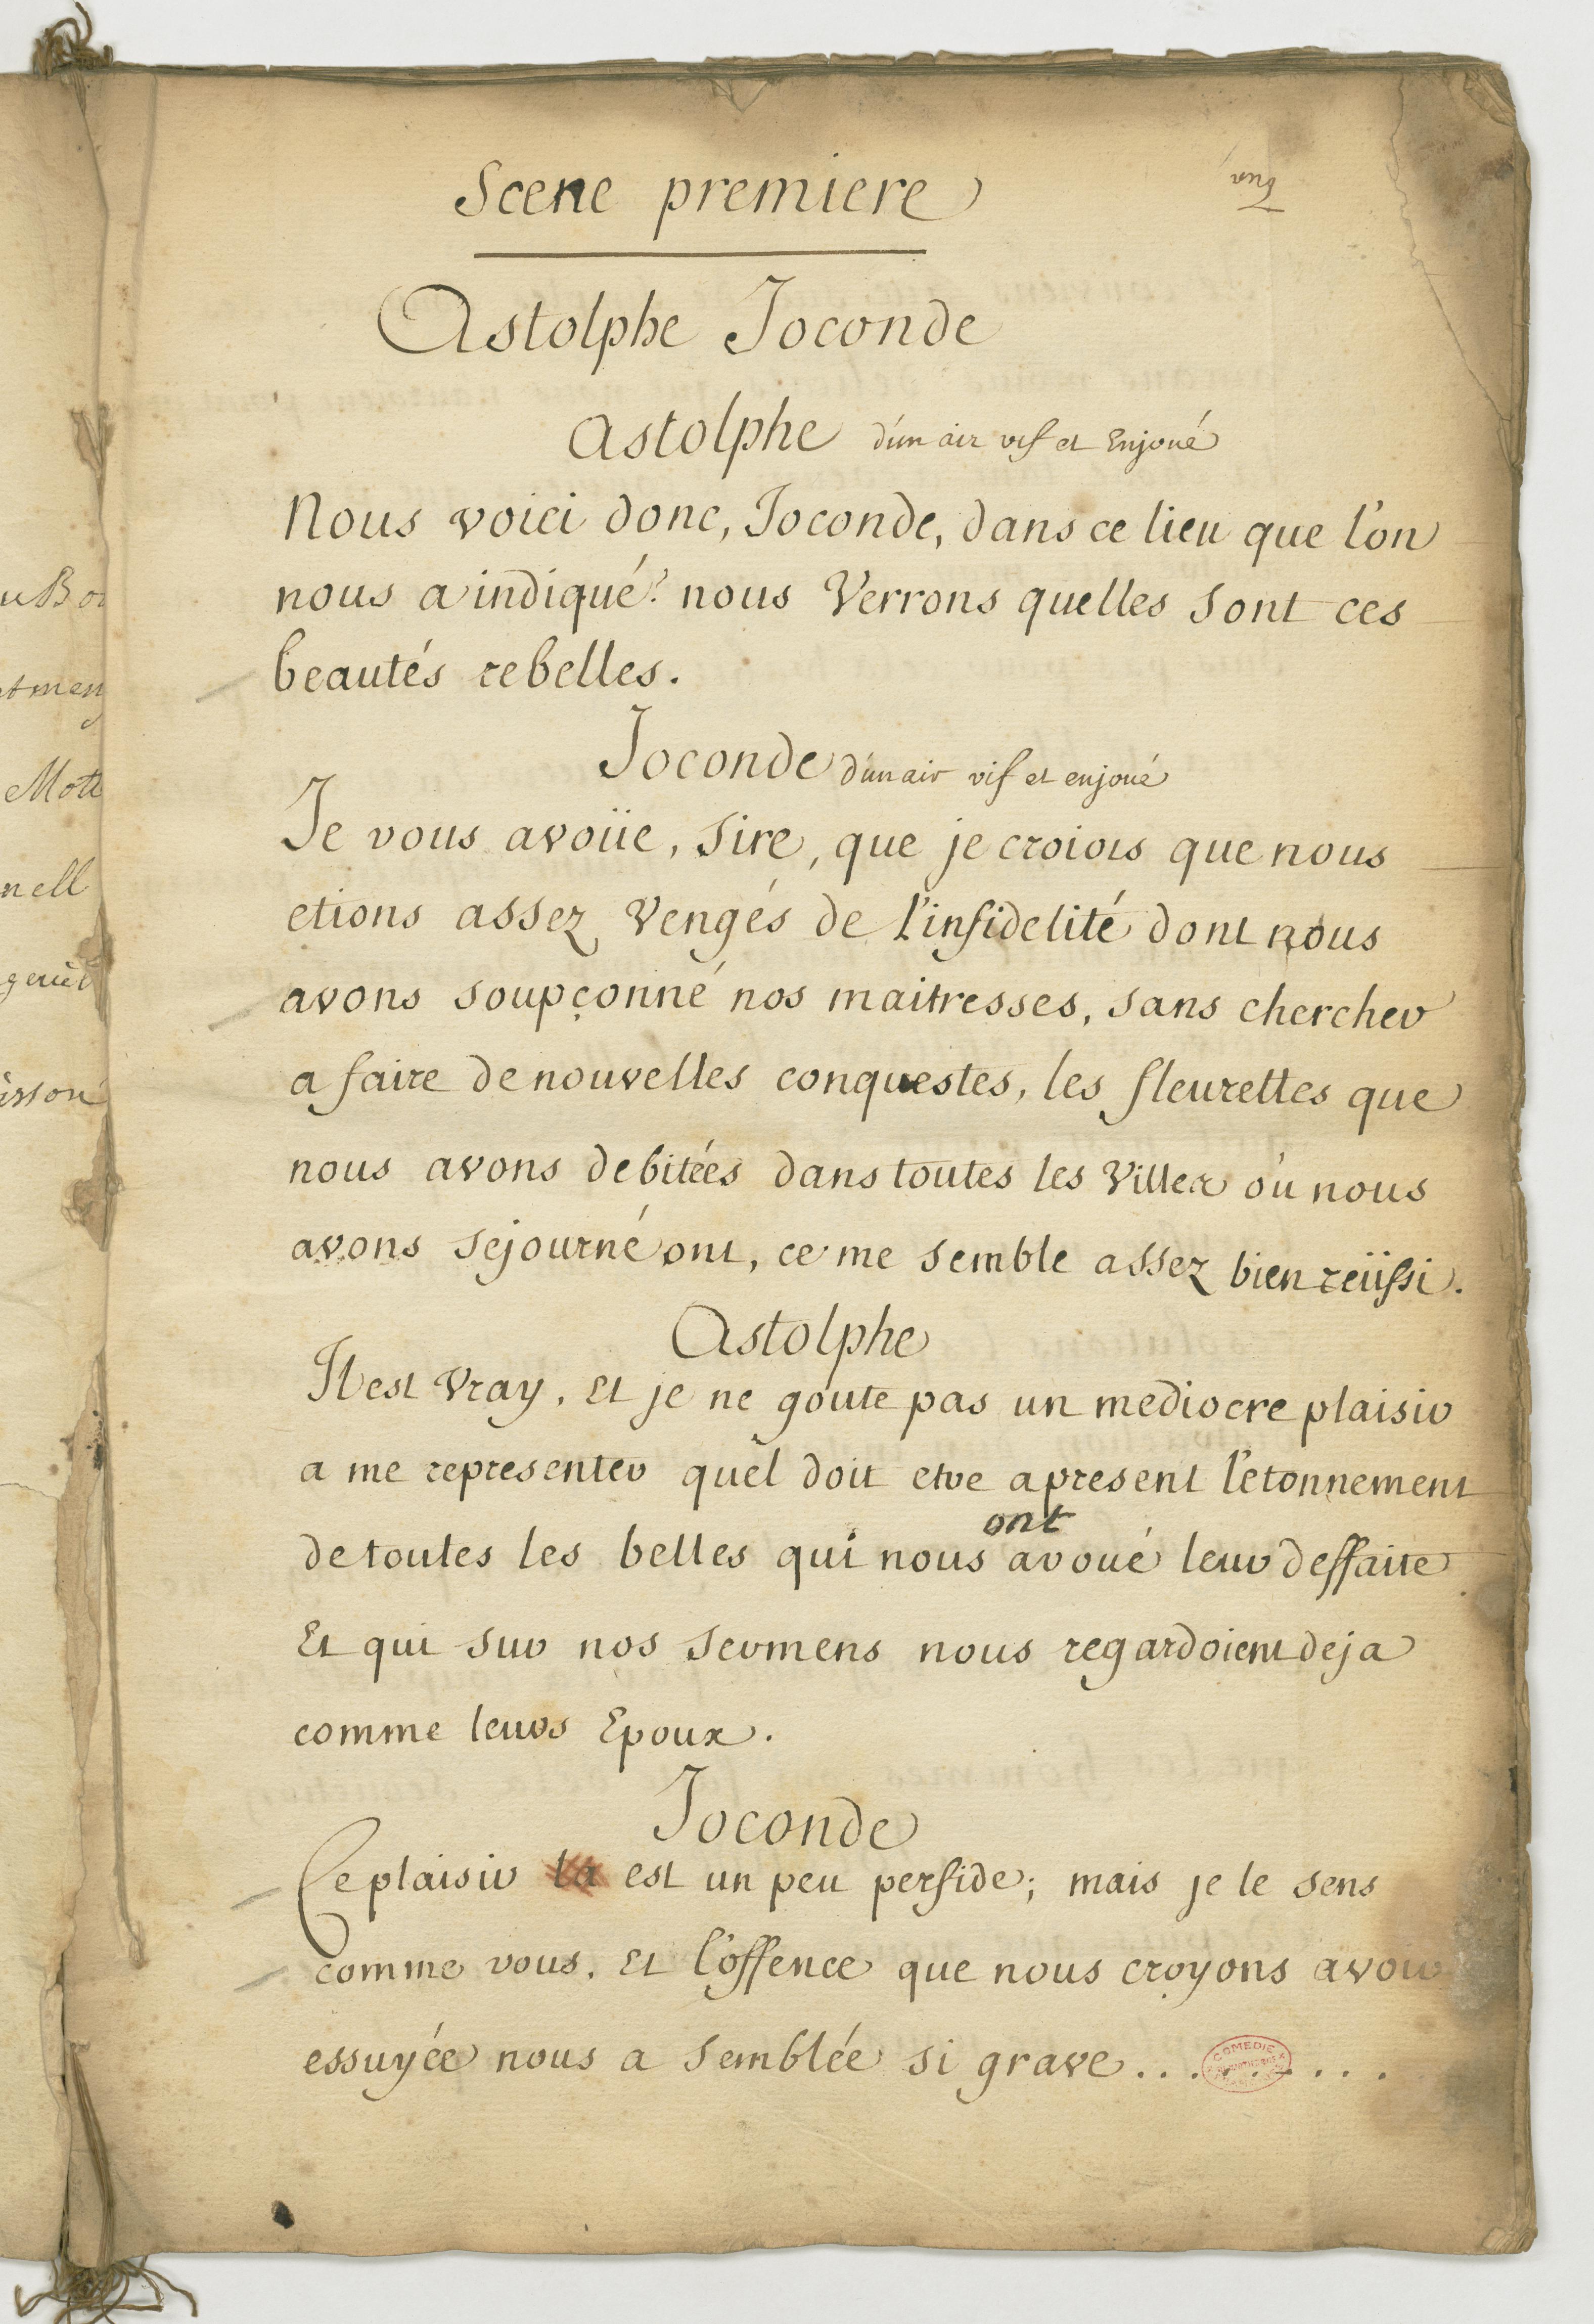 ung
Scene premiere
Astolphe Joconde
Astolphe d'un air vif et Enjoué
Nous voici donc, Joconde, dans ce lieu que l'on
nous a indiqué? nous Verrons quelles sont ces
beautés rebelles.
Joconde d'un air vif et enjoué
Je vous avoüe, Sire, que je croiois que nous
etions assez Vengés de l'infidelité dont nous
avons soupçonné nos maitresses, sans chercher
a faire de nouvelles conquestes, les fleurettes que
nous avons debitées dans toutes les Villes où nous
avons sejourné ont, ce me semble assez bien reüssi.
Astolphe
Il est Vray, Et je ne goute pas un mediocre plaisir
a me representer quel doit etre apresent l'etonnement
ont
de toutes les belles qui nous avoué leur deffaite
Et qui sur nos sermens nous regardoient deja
comme leurs Epoux.
Joconde
Ce plaisir la est un peu perfide; mais je le sens
comme vous, Et l'offence que nous croyons avoir
essuyée nous a semblée si grave.........
COMEDIE
u Bo
tmen
Mott
nell
isson